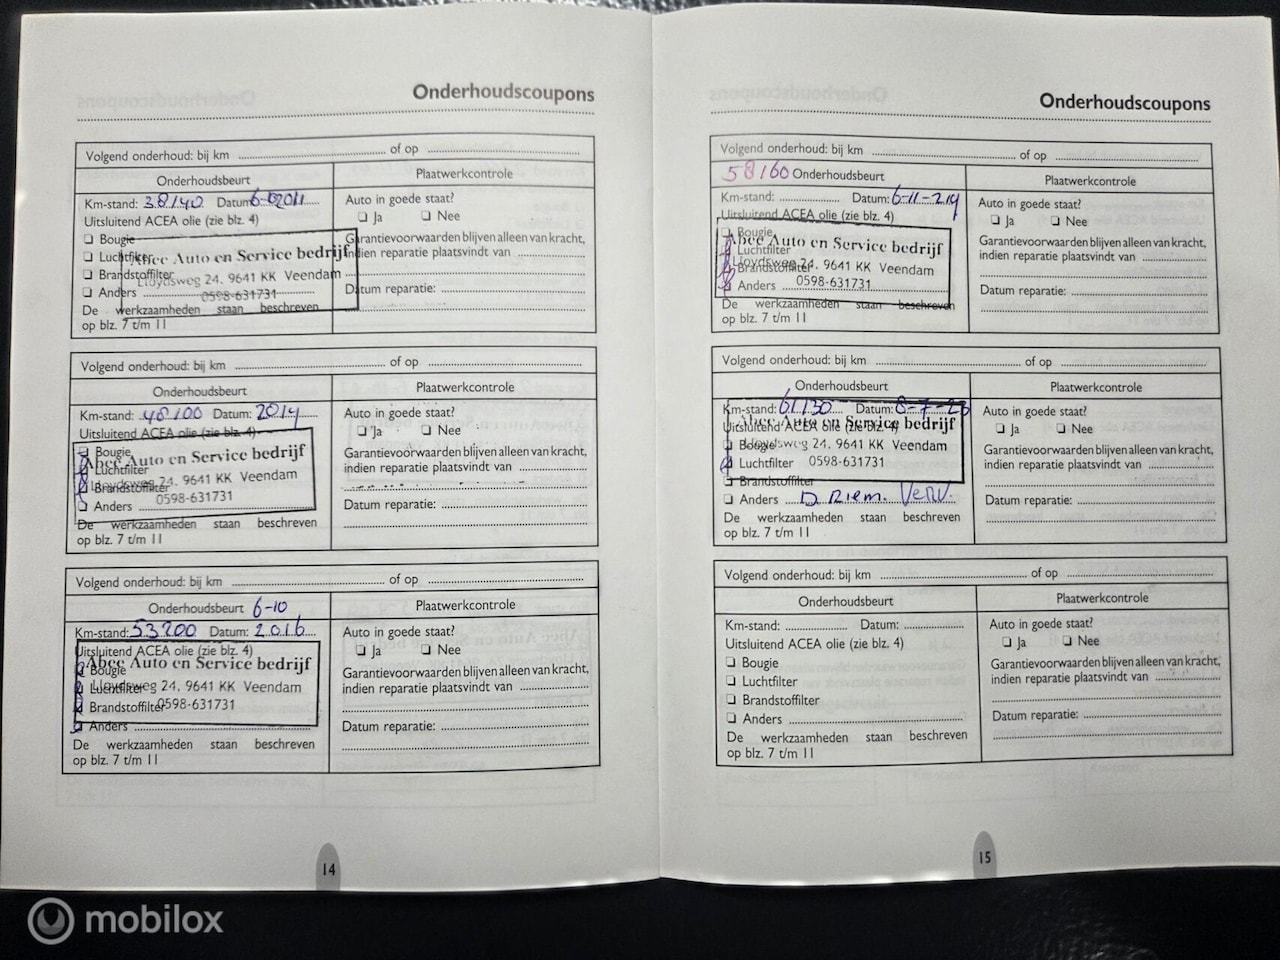 Onderhoudscoupons
Volgend onderhoud: bij km of op
Onderhoudsbeurt
Plaatwerkcontrole
Km-stand: 38140 Datum:
Auto in goede staat?
Uitsluitend ACEA olie (zie blz. 4)
Ja Nee
Bougie
Garantievoorwaarden blijven alleen van kracht,
Luchtfilter
indien reparatie plaatsvindt van
Abee Auto en Service bedrijf
Brandstoffilter
Lloydsweg 24. 9641 KK Veendam
Anders
0598-631731
Datum reparatie:
De werkzaamheden staan beschreven
op blz. 7 t/m 11
Volgend onderhoud: bij km of op
Onderhoudsbeurt
Plaatwerkcontrole
Km-stand: 48100 Datum: 2014
Auto in goede staat?
Uitsluitend ACEA olie (zie blz. 4)
Ja Nee
Bougie
Garantievoorwaarden blijven alleen van kracht,
Abee Auto en Service bedrijf
Luchtfilter
indien reparatie plaatsvindt van
Lloydsweg 24. 9641 KK Veendam
Brandstoffilter
0598-631731
Anders
Datum reparatie:
De werkzaamheden staan beschreven
op blz. 7 t/m 11
Volgend onderhoud: bij km of op
Onderhoudsbeurt 6-10
Plaatwerkcontrole
Km-stand: 53200 Datum: 2016
Auto in goede staat?
Uitsluitend ACEA olie (zie blz. 4)
Ja Nee
Abee Auto en Service bedrijf
Bougie
Garantievoorwaarden blijven alleen van kracht,
Luchtfilter
indien reparatie plaatsvindt van
Lloydsweg 24. 9641 KK Veendam
Brandstoffilter
0598-631731
Anders
Datum reparatie:
De werkzaamheden staan beschreven
op blz. 7 t/m 11
14
Onderhoudscoupons
Volgend onderhoud: bij km of op
58160 Onderhoudsbeurt
Plaatwerkcontrole
Km-stand: Datum:
Auto in goede staat?
Uitsluitend ACEA olie (zie blz. 4)
Ja Nee
Bougie
Garantievoorwaarden blijven alleen van kracht,
Abee Auto en Service bedrijf
Luchtfilter
indien reparatie plaatsvindt van
Lloydsweg 24. 9641 KK Veendam
Brandstoffilter
0598-631731
Anders
Datum reparatie:
De werkzaamheden staan beschreven
op blz. 7 t/m 11
Volgend onderhoud: bij km of op
Onderhoudsbeurt
Plaatwerkcontrole
Km-stand: 61130 Datum:
Auto in goede staat?
Uitsluitend ACEA olie (zie blz. 4)
Abee Auto en Service bedrijf
Ja Nee
Bougie
Lloydsweg 24. 9641 KK Veendam
Garantievoorwaarden blijven alleen van kracht,
Luchtfilter
0598-631731
indien reparatie plaatsvindt van
Brandstoffilter
Anders D Riem. Verv.
Datum reparatie:
De werkzaamheden staan beschreven
op blz. 7 t/m 11
Volgend onderhoud: bij km of op
Onderhoudsbeurt
Plaatwerkcontrole
Km-stand: Datum:
Auto in goede staat?
Uitsluitend ACEA olie (zie blz. 4)
Ja Nee
Bougie
Garantievoorwaarden blijven alleen van kracht,
Luchtfilter
indien reparatie plaatsvindt van
Brandstoffilter
Anders
Datum reparatie:
De werkzaamheden staan beschreven
op blz. 7 t/m 11
15
mobilox